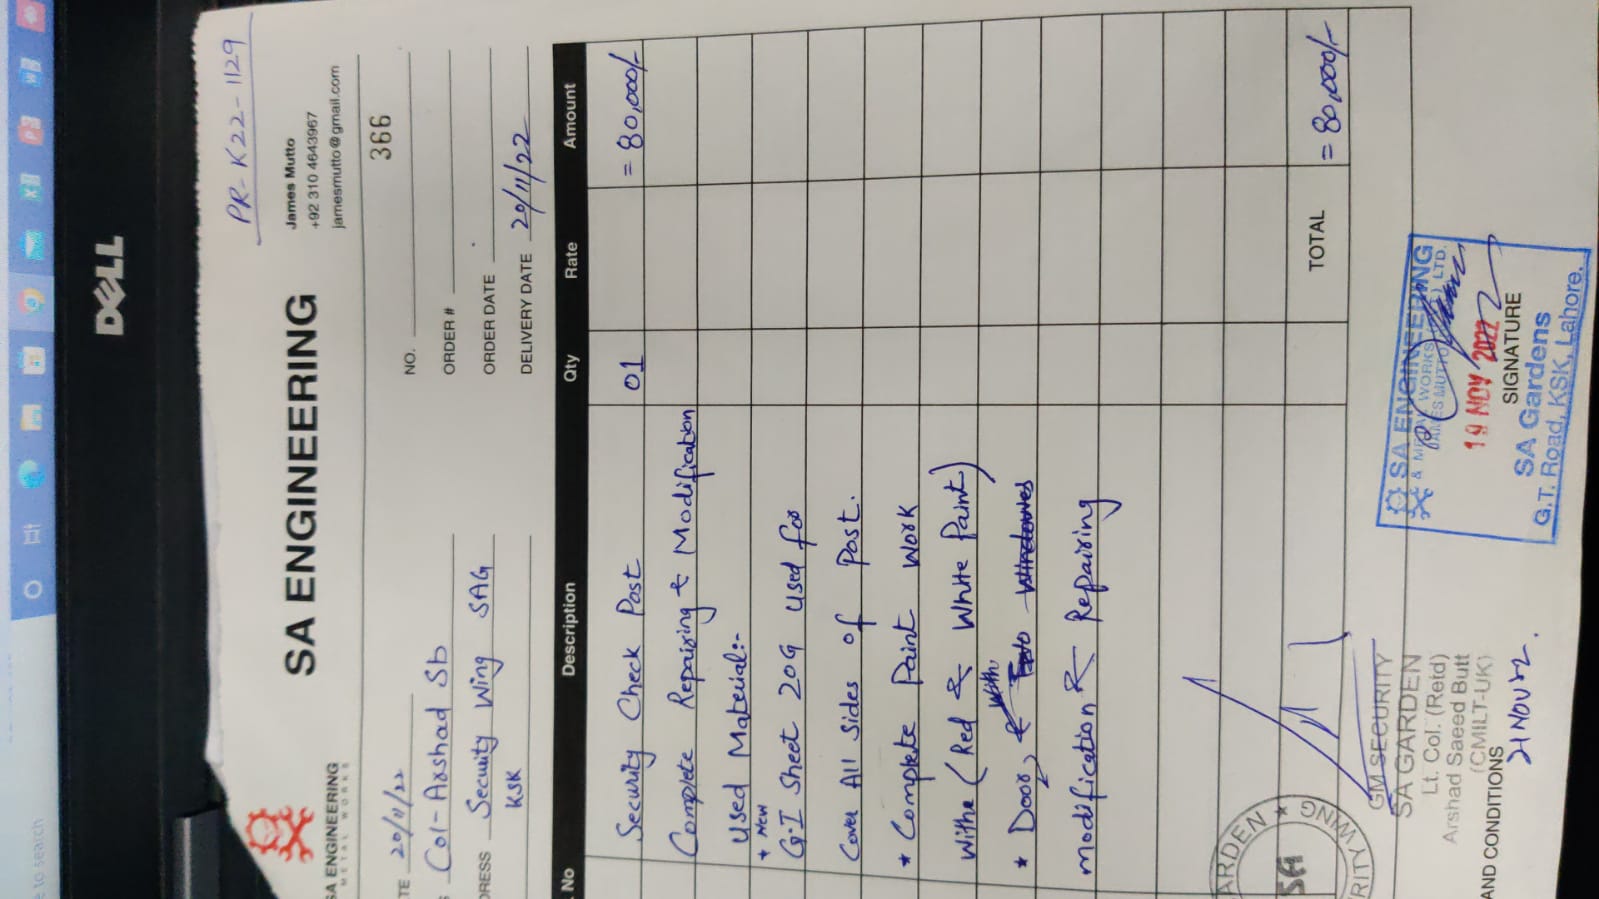 e to search
DELL
PR-K22-1129
SA ENGINEERING
METAL WORKS
SA ENGINEERING
James Mutto
+92 310 4643967
jamesmutto@gmail.com
366
TE 20/11/22
NO.
Col-Arshad Sb
ORDER #
DRESS Security Wing SAG
KSK
ORDER DATE
DELIVERY DATE 20/11/22
No Description Qty Rate Amount
Security Check Post 01 = 80,000/-
Complete Repairing & Modification
Used Material:-
* New
G.I Sheet 20G used for
Cover All Sides of Post.
* Complete Paint Work
Withe (Red & White Paint)
* Door, & with Two Windowes
modification & Repairing
TOTAL = 80,000/-
ARDEN ★
SA
RITY WING
GM SECURITY
SA GARDEN
Lt. Col. (Retd)
Arshad Saeed Butt
(CMILT-UK)
AND CONDITIONS
21 NOV 22.
SA ENGINEERING
& METAL WORKS LTD.
JAMES MUTTO
19 NOV 2022
SIGNATURE
SA Gardens
G.T. Road, KSK, Lahore.